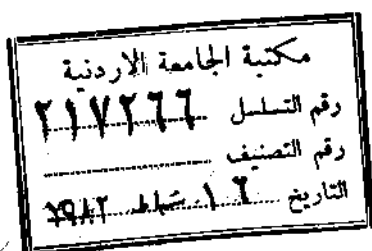 مكتبة الجامعة الاردنية
رقم التسلسل ٢١٧٢٦٦
رقم التصنيف
التاريخ ١٦ شباط ١٩٨٢